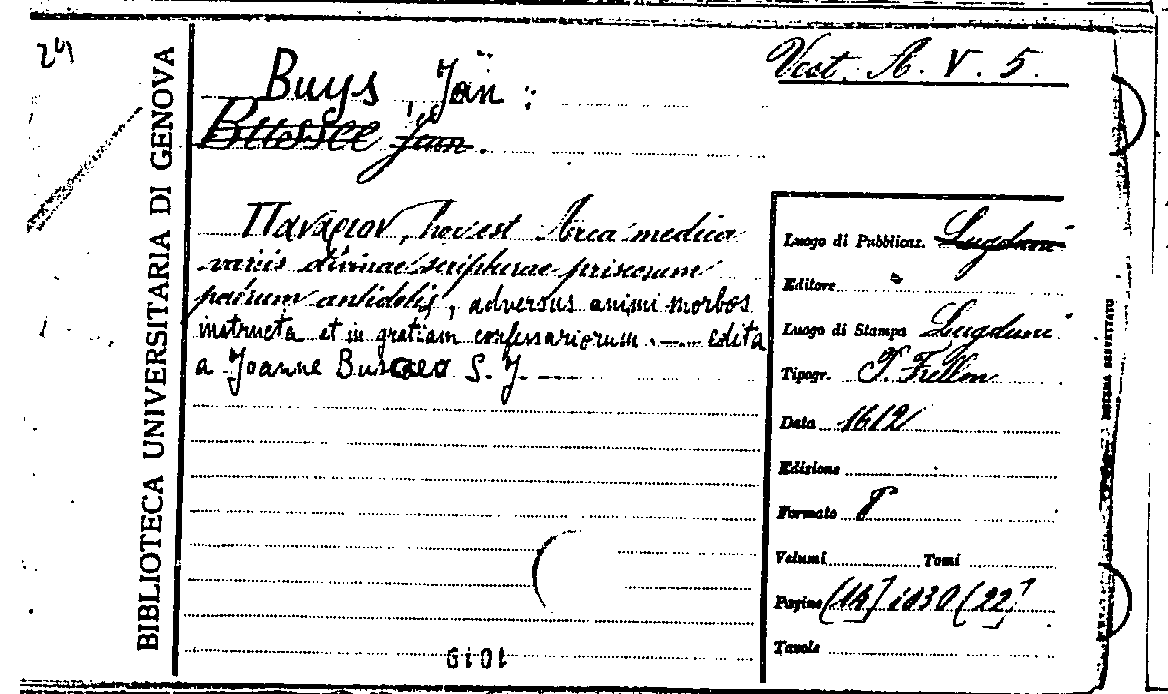 BIBLIOTECA UNIVERSITARIA DI GENOVA
Vest. A. V. 5.
Buys, Jan :
Πανάριον, hoc est Arca medica
variis divinae scripturae priscorum
patrum antidotis, adversus animi morbos
instructa et in gratiam confessariorum ... edita
a Joanne Busaeo S. J.
Luogo di Pubblicaz. Lugduni
Editore
Luogo di Stampa Lugduni
Tipogr. Frellon
Data 1612
Edizione
Formato 8°
Volumi Tomi
Pagine [14] 1030 [22]
Tavole